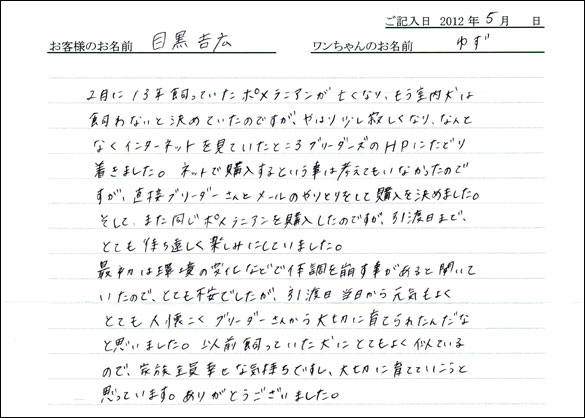 ご記入日 2012年 5月 日
お客様のお名前 目黒吉広 ワンちゃんのお名前 ゆず
2月に13年飼っていたポメラニアンが亡くなり、もう室内犬は
飼わないと決めていたのですが、やはり少し寂しくなり、なんと
なくインターネットを見ていたところブリーダーズのHPにたどり
着きました。ネットで購入するという事は考えてもいなかったので
すが、直接ブリーダーさんとメールのやりとりをして購入を決めました。
そして、また同じポメラニアンを購入したのですが、引渡日まで、
とても待ち遠しく楽しみにしていました。
最初は環境の変化などで体調を崩す事があると聞いて
いたので、とても不安でしたが、引渡日当日から元気もよく
とても人懐こくブリーダーさんから大切に育てられたんだな
と思いました。以前飼っていた犬にとてもよく似ている
ので、家族全員幸せな気持ちですし、大切に育てていこうと
思っています。ありがとうございました。